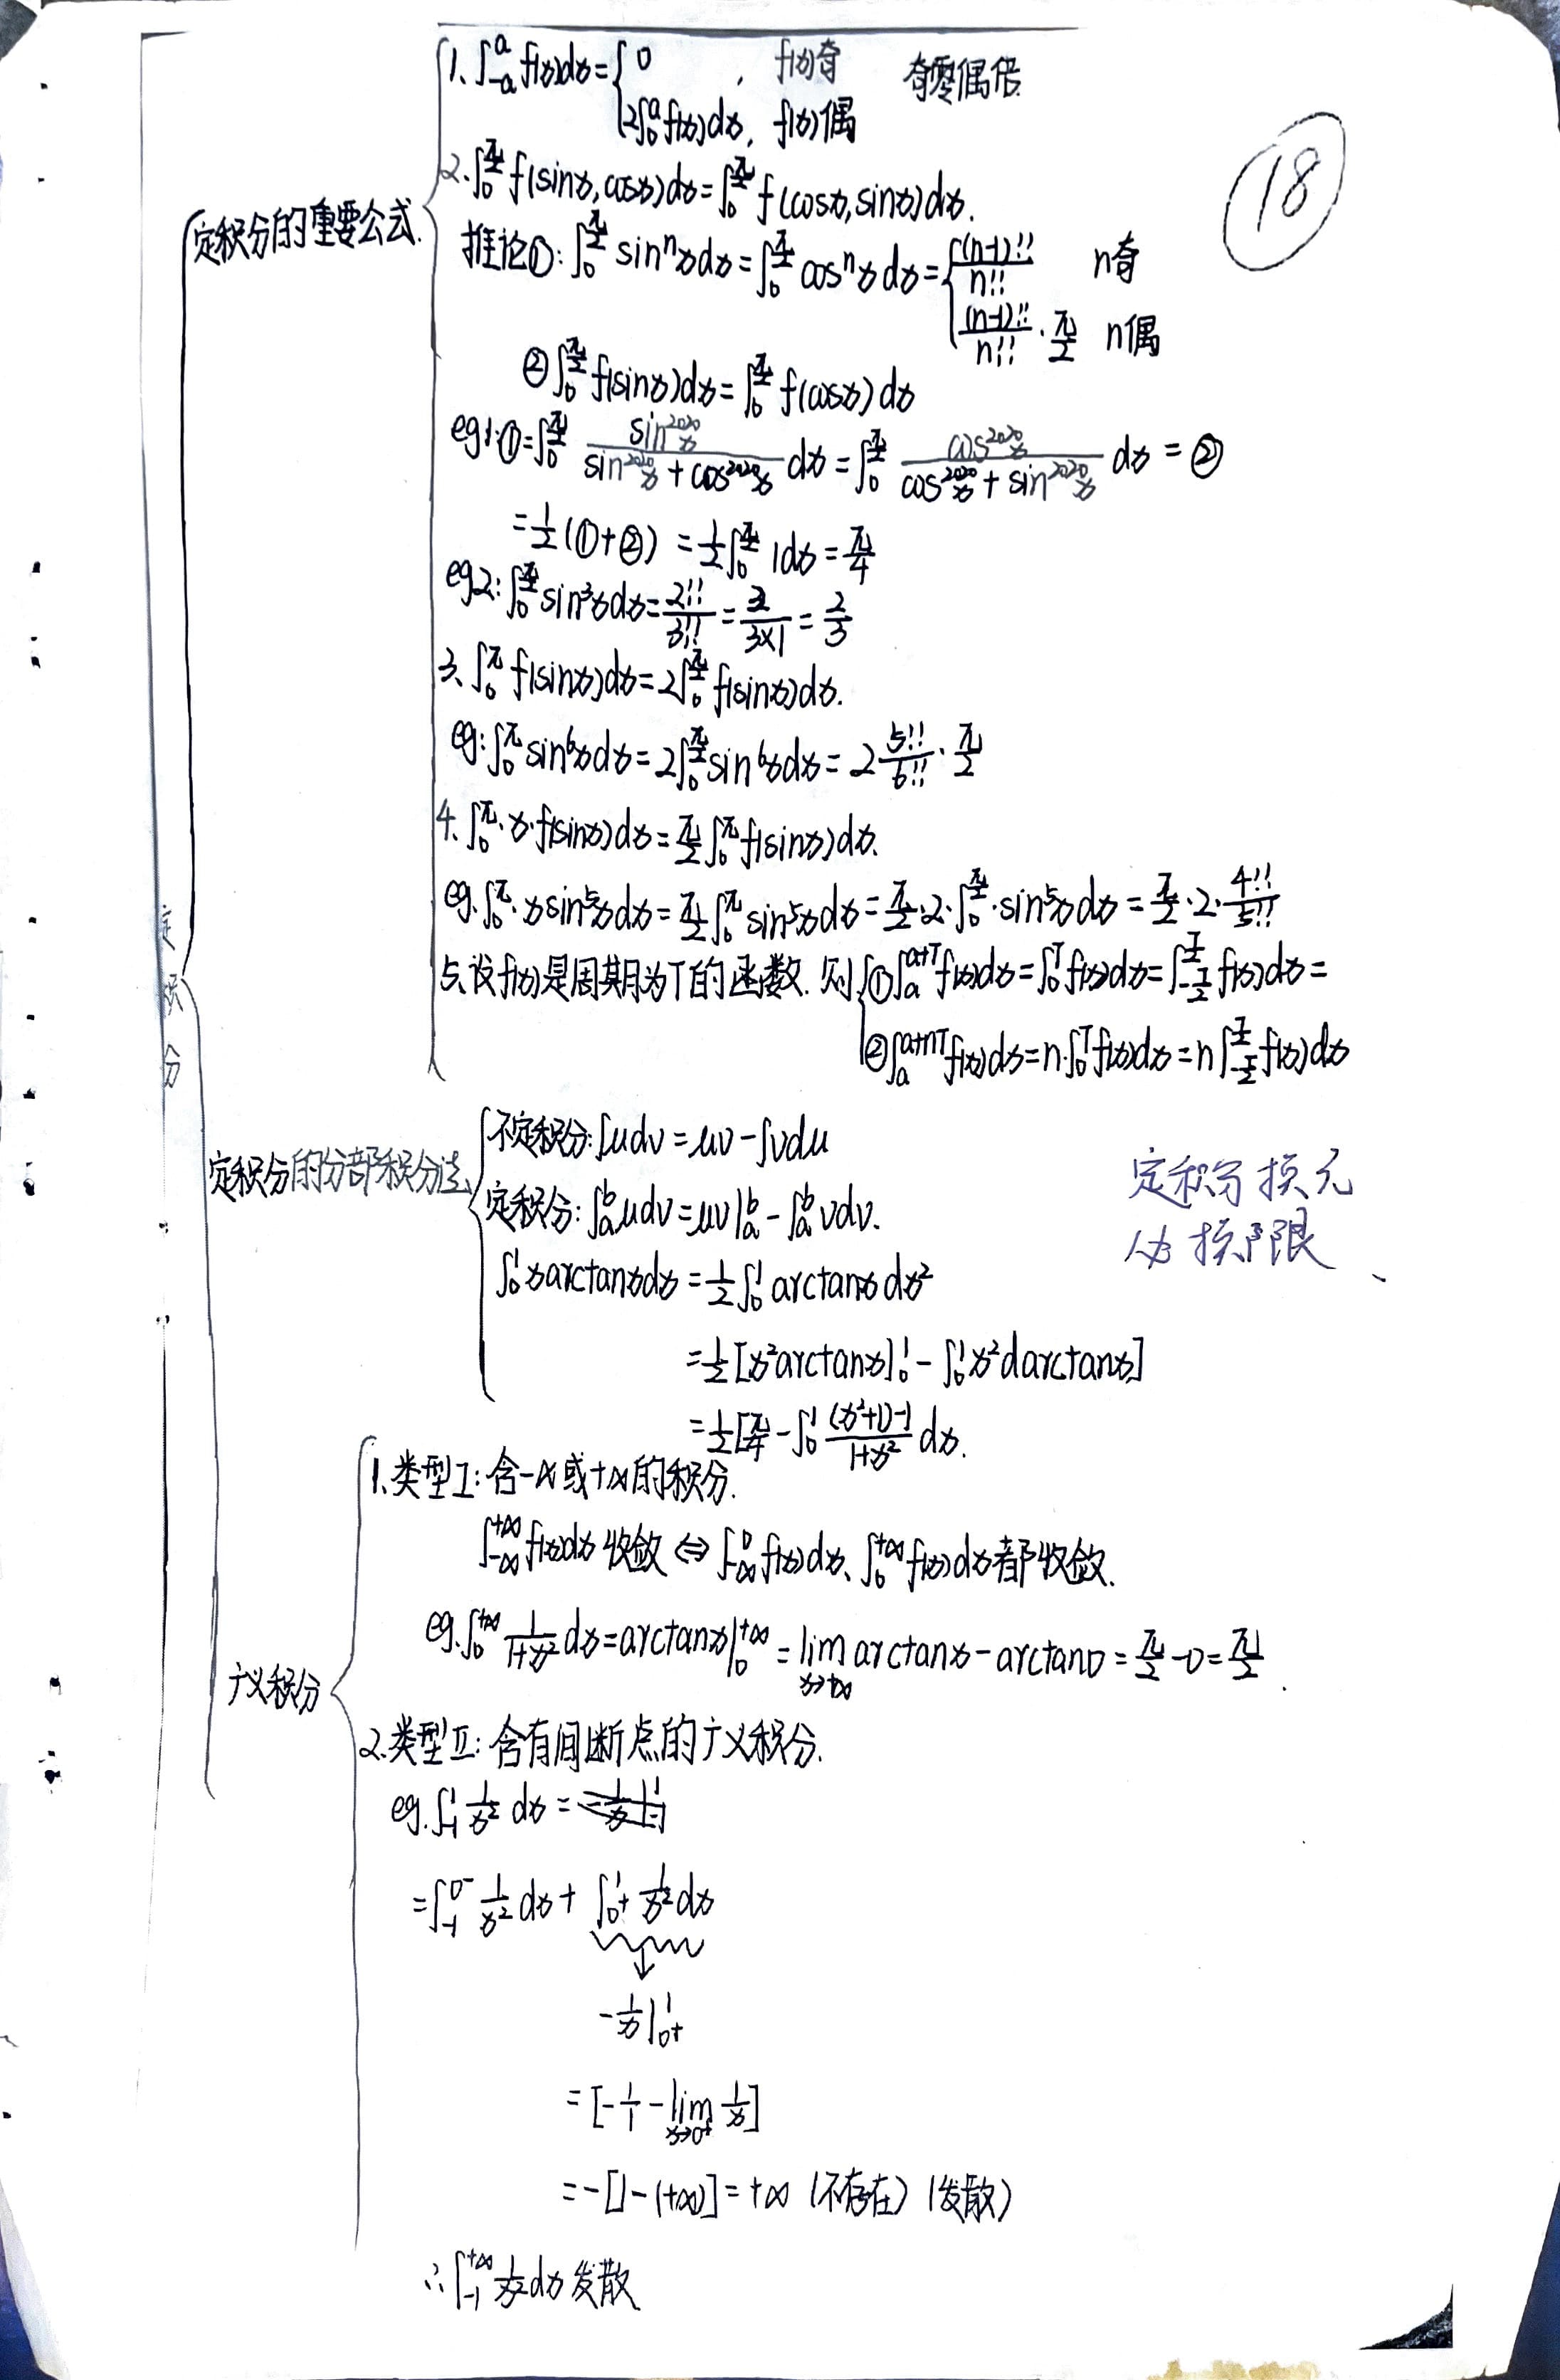 1、∫_{-a}^{a} f(x)dx = { 0 , f(x)奇 奇零偶倍
2∫_0^a f(x)dx, f(x)偶
18
2.∫_0^{π/2} f(sinx,cosx)dx = ∫_0^{π/2} f(cosx,sinx)dx.
定积分的重要公式.
推论①: ∫_0^{π/2} sin^n x dx = ∫_0^{π/2} cos^n x dx = { (n-1)!!/n!! n奇
(n-1)!!/n!! · π/2 n偶
②∫_0^{π/2} f(sinx)dx = ∫_0^{π/2} f(cosx)dx
eg1:①=∫_0^{π/2} sin^{2020}x/(sin^{2020}x + cos^{2020}x) dx = ∫_0^{π/2} cos^{2020}x/(cos^{2020}x + sin^{2020}x) dx = ②
= 1/2(①+②) = 1/2∫_0^{π/2} 1dx = π/4
eg2:∫_0^{π/2} sin³xdx = 2!!/3!! = 2/(3×1) = 2/3
3、∫_0^π f(sinx)dx = 2∫_0^{π/2} f(sinx)dx.
eg:∫_0^π sin⁶xdx = 2∫_0^{π/2} sin⁶xdx = 2 5!!/6!! · π/2
4、∫_0^π · x·f(sinx)dx = π/2 ∫_0^π f(sinx)dx.
eg.∫_0^π · xsin⁵xdx = π/2 ∫_0^π sin⁵xdx = π/2·2·∫_0^{π/2}·sin⁵xdx = π/2·2·4!!/5!!
5、设f(x)是周期为T的函数. 则{①∫_a^{a+T} f(x)dx = ∫_0^T f(x)dx = ∫_{-T/2}^{T/2} f(x)dx =
②∫_a^{a+nT} f(x)dx = n·∫_0^T f(x)dx = n∫_{-T/2}^{T/2} f(x)dx
定积分
不定积分:∫udv = uv - ∫vdu
定积分的分部积分法
定积分:∫_a^b udv = uv|_a^b - ∫_a^b vdv.
定积分换元
必换限、
∫_0^1 xarctanxdx = 1/2∫_0^1 arctanx dx²
= 1/2[x²arctanx|_0^1 - ∫_0^1 x²darctanx]
= 1/2[π/4 - ∫_0^1 ((x²+1)-1)/(1+x²) dx.
1、类型Ⅰ:含-∞或+∞的积分.
∫_{-∞}^{+∞} f(x)dx 收敛 ⇔ ∫_{-∞}^0 f(x)dx、∫_0^{+∞} f(x)dx都收敛.
eg.∫_0^{+∞} 1/(1+x²) dx = arctanx|_0^{+∞} = lim_{x→+∞} arctanx - arctan0 = π/2 - 0 = π/2.
广义积分
2.类型Ⅱ:含有间断点的广义积分.
eg.∫_{-1}^1 1/x² dx = -1/x|_{-1}^1
= ∫_{-1}^{0-} 1/x² dx + ∫_{0+}^1 1/x² dx
↓
-1/x|_{0+}^1
= [-1/1 - lim_{x→0+} 1/x]
= -[1-(+∞)] = +∞ (不存在) (发散)
∴∫_{-1}^{+∞} 1/x² dx 发散